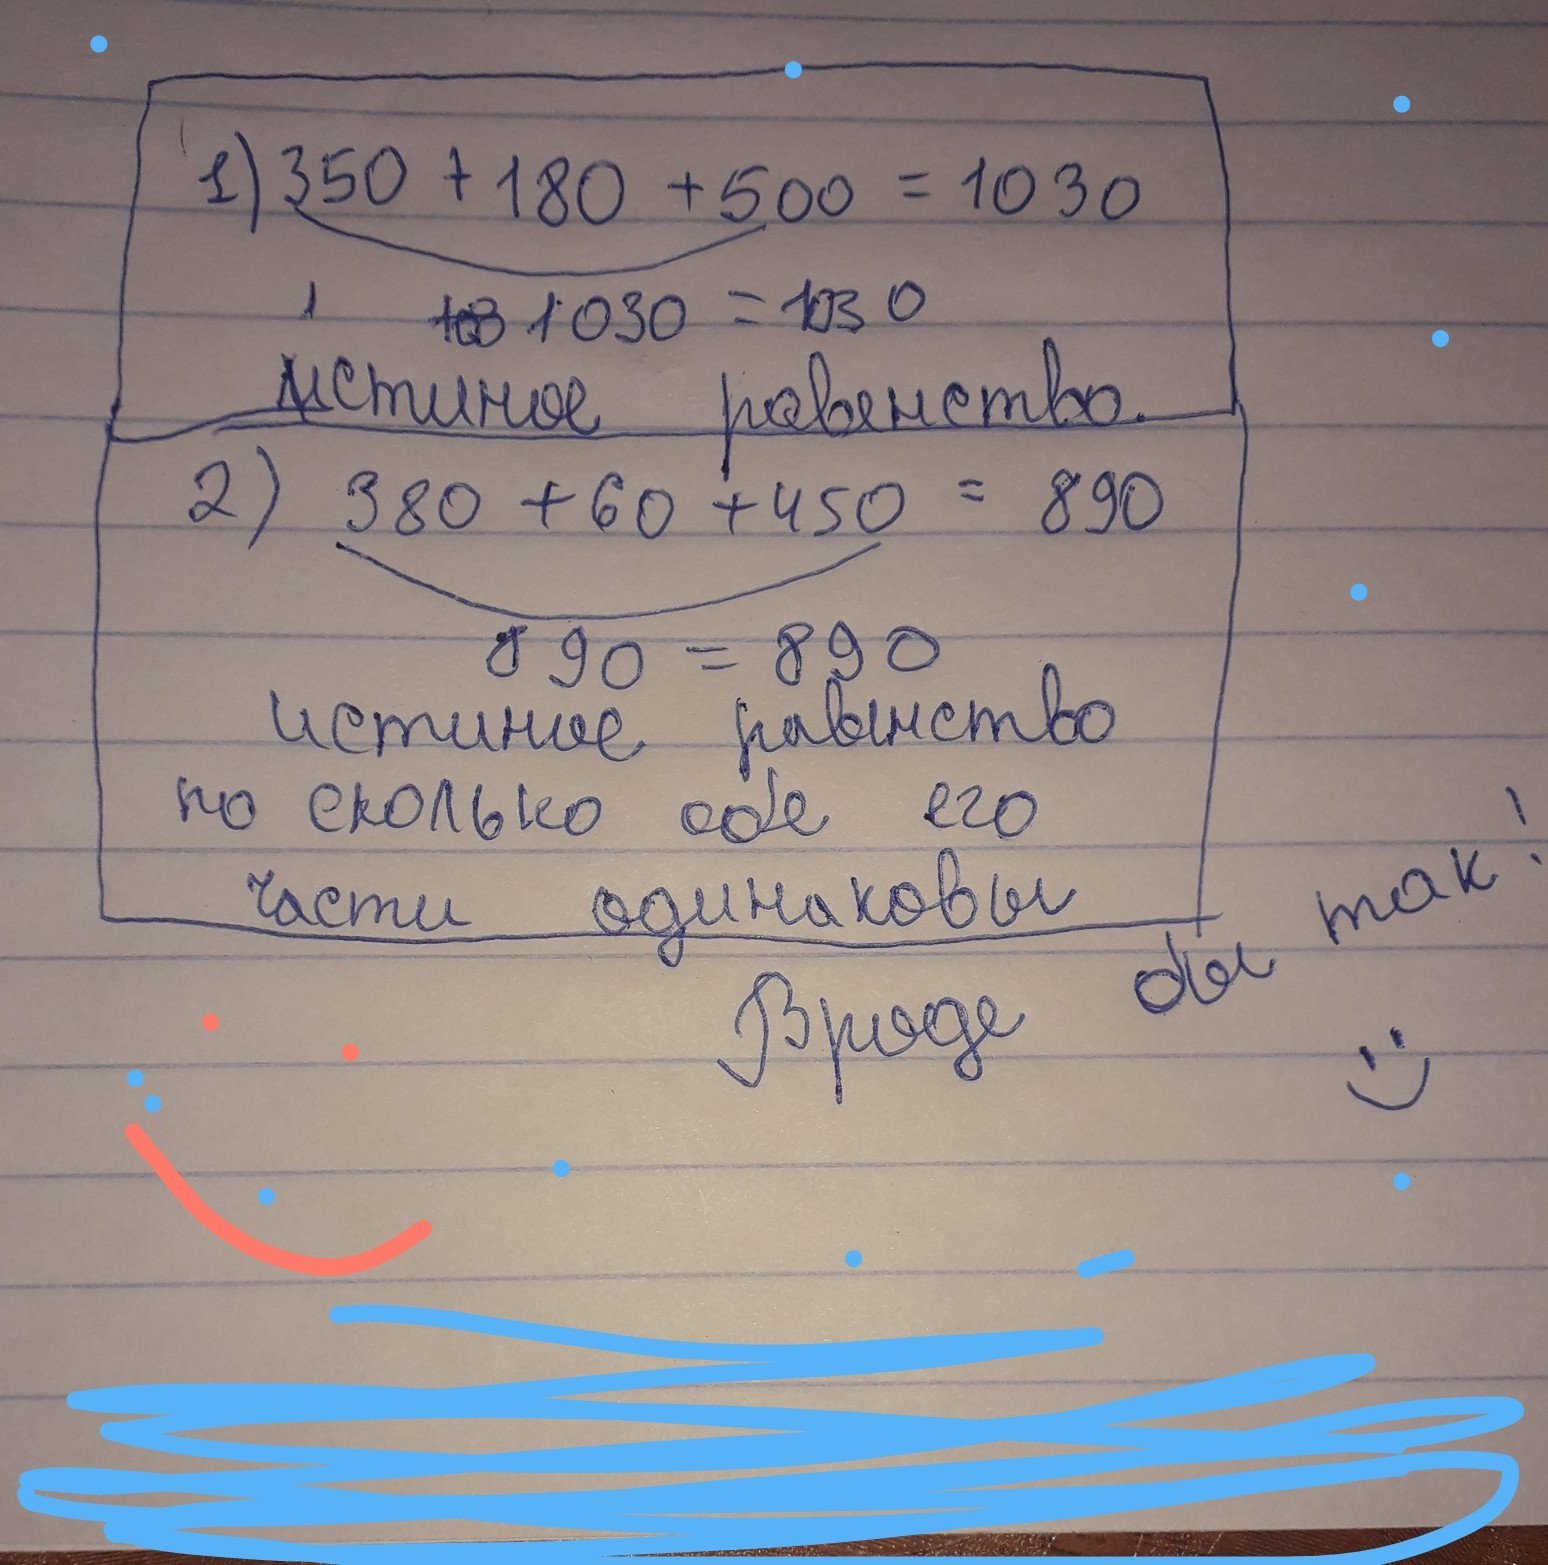 1) 350 + 180 + 500 = 1030
1030 = 1030
истиное равенство.
2) 380 + 60 + 450 = 890
890 = 890
истиное равынство
по сколько обе его
части одинаковы
Вроде бы так!